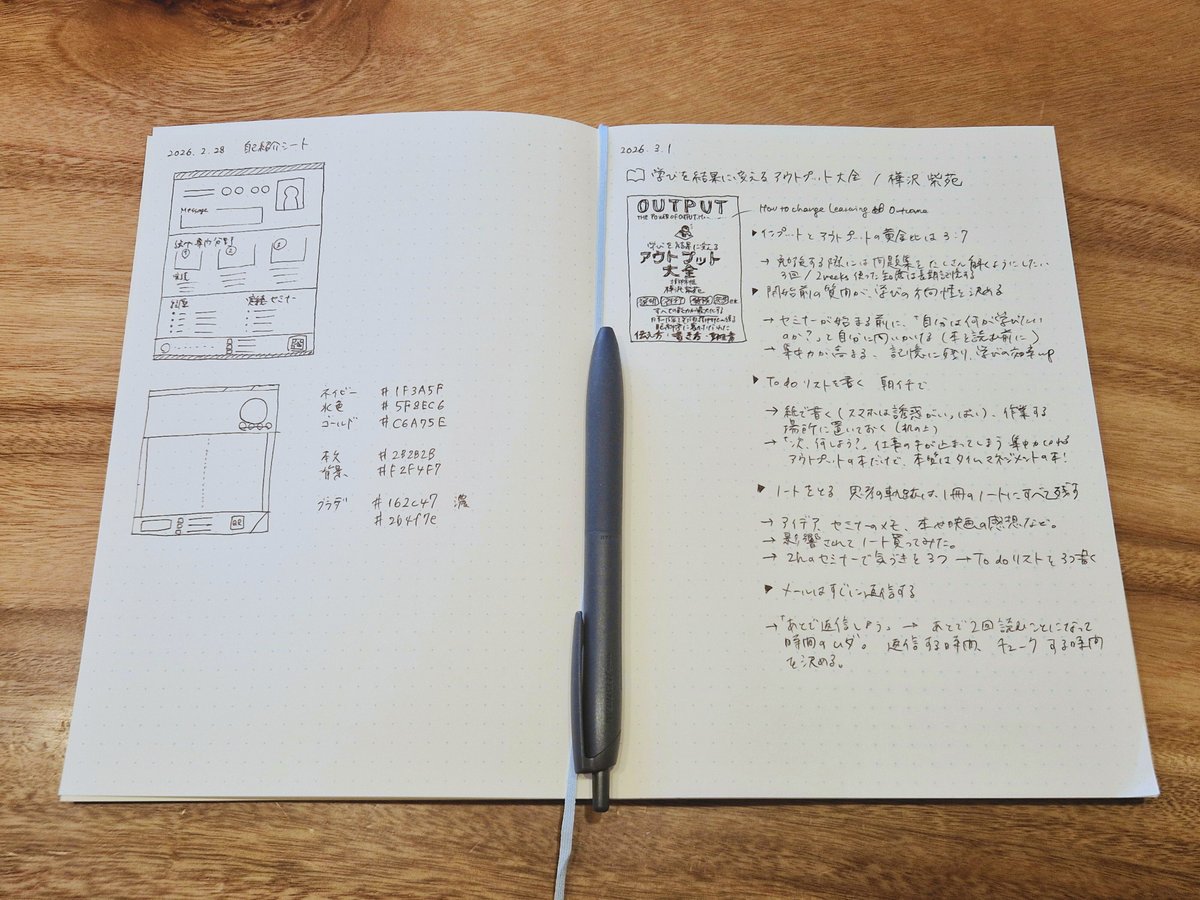 2026.2.28 自己紹介シート
Message
ネイビー #1F3A5F
水色 #5F8EC6
ゴールド #C6A75E
本文 #2B2B2B
背景 #F2F4F7
グラデ #162C47 濃
#2b4f7e
QR
2026.3.1
学びを結果に変えるアウトプット大全 / 樺沢紫苑
OUTPUT
THE POWER OF OUTPUT
学びを結果に変える
アウトプット
大全
樺沢紫苑
伝え方 書き方 動き方
How to change Learning Outcome
▶インプットとアウトプットの黄金比は3:7
→ 勉強する際には問題集をたくさん解くようにしたい
3回/2weeks 使った知識は長期記憶する
▶開始前の質問が、学びの方向性を決める
→ セミナーが始まる前に、「自分は何が学びたい
のか?」って自分に問いかける(本を読む前に)
→ 集中力が高まる、記憶に残り、学びの効率up
▶To do リストを書く 朝イチで
→ 紙で書く(スマホは誘惑がいっぱい)、作業する
場所に置いておく(机の上)
→「次、何しよう?」仕事の手が止まってしまう 集中力
アウトプットの本だけど、本質はタイムマネジメントの本!
▶ノートをとる 思考の軌跡は、1冊のノートにすべて残す
→ アイデア、セミナーのメモ、本や映画の感想など。
→ 影響されてノート買ってみた。
→ 2hのセミナーで気づきを3つ → To do リストを3つ書く
▶メールはすぐに返信する
→「あとで返信しよう」→ あとで2回読むことになって
時間のムダ。返信する時間、チェックする時間
を決める。